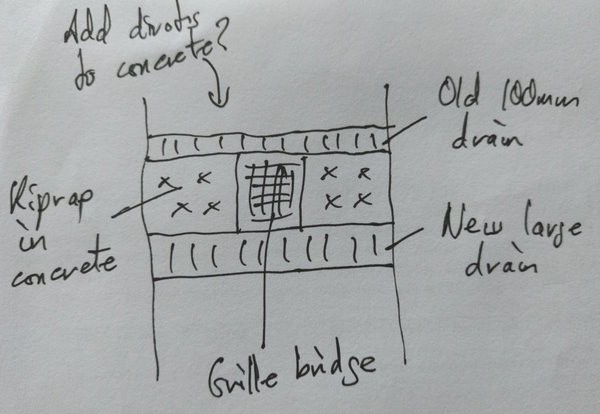 Add divots
to concrete?
Old 100mm
drain
Riprap
in
concrete
New large
drain
Grille bridge